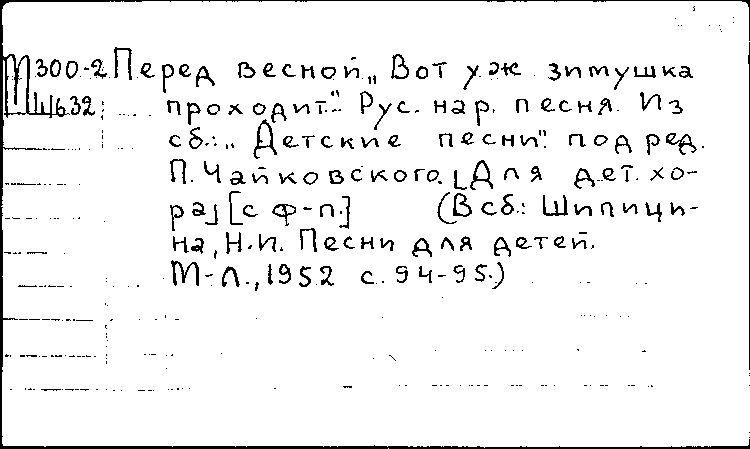 М300-2 Перед весной „Вот уж зимушка
Ш632 проходит". Рус. нар. песня. Из
сб.: „Детские песни". под ред.
П. Чайковского. [Для дет. хо-
ра] [с ф-п.] (В сб.: Шипици-
на, Н.И. Песни для детей.
М-Л., 1952 с. 94-95.)